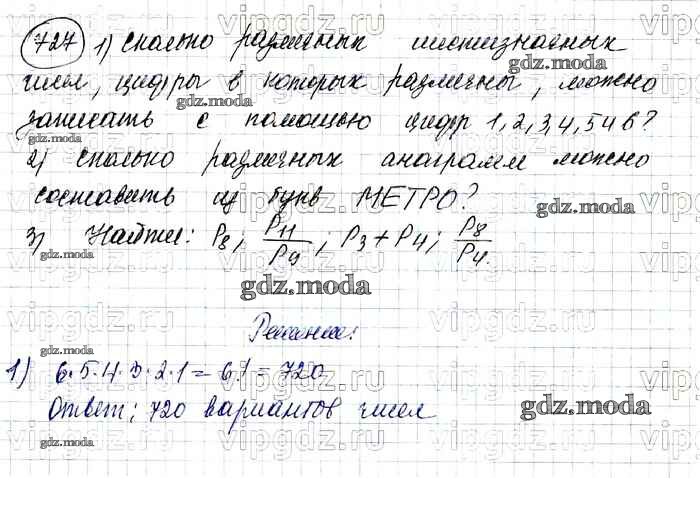 727 1) Сколько различных шестизначных
чисел, цифры в которых различны, можно
записать с помощью цифр 1, 2, 3, 4, 5 и 6?
2) Сколько различных анаграмм можно
составить из букв МЕТРО?
3) Найти: P₈; P₁₁/P₉; P₃ + P₄; P₈/P₄.
Решение:
1) 6·5·4·3·2·1 = 6! = 720
Ответ: 720 вариантов чисел
gdz.moda
vipgdz.ru